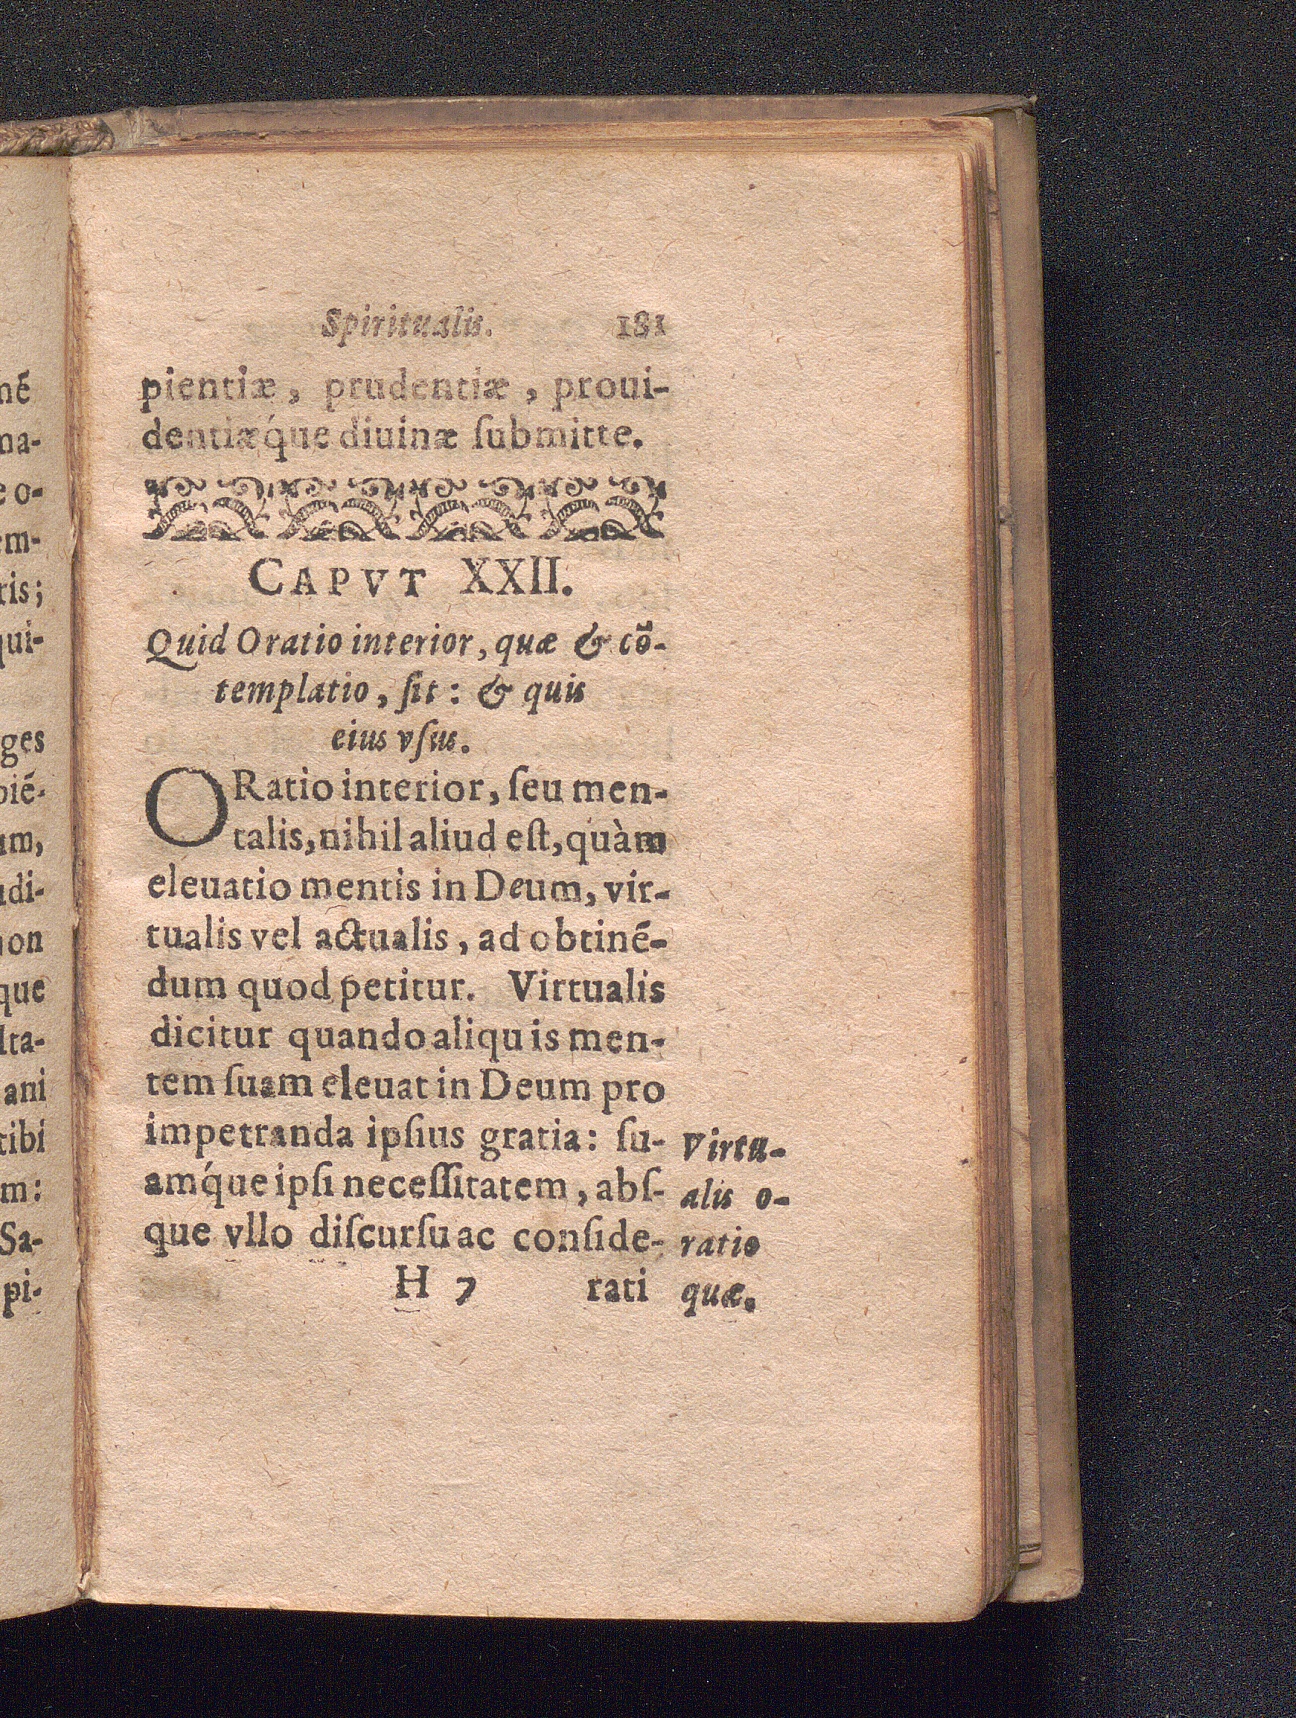 né
na-
e o-
em-
ris;
qui-
ges
pié-
um,
udi-
non
que
lta-
ani
tibi
m:
Sa-
pi-
Spiritualis. 181
pientiæ, prudentiæ, proui-
dentiæq́ue diuinæ ſubmitte.
CAPVT XXII.
Quid Oratio interior, quæ & cõ-
templatio, ſit: & quis
eius vſus.
ORatio interior, ſeu men-
talis, nihil aliud eſt, quàm
eleuatio mentis in Deum, vir-
tualis vel actualis, ad obtinē-
dum quod petitur. Virtualis
dicitur quando aliquis men-
tem ſuam eleuat in Deum pro
impetranda ipſius gratia: ſu-
amq́ue ipſi neceſſitatem, abſ-
que vllo diſcurſu ac conſide-
H 7 rati
Virtu-
alis o-
ratio
quæ.